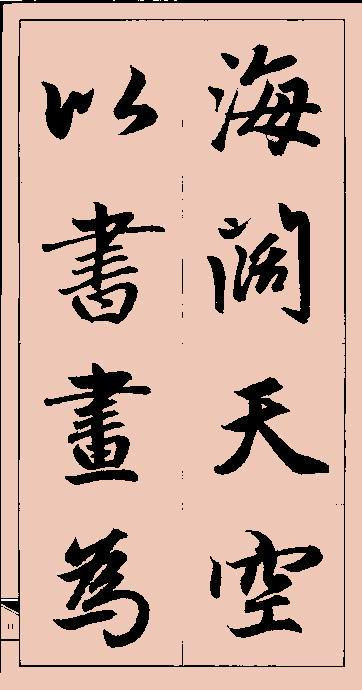 海闊天空
以書畫為